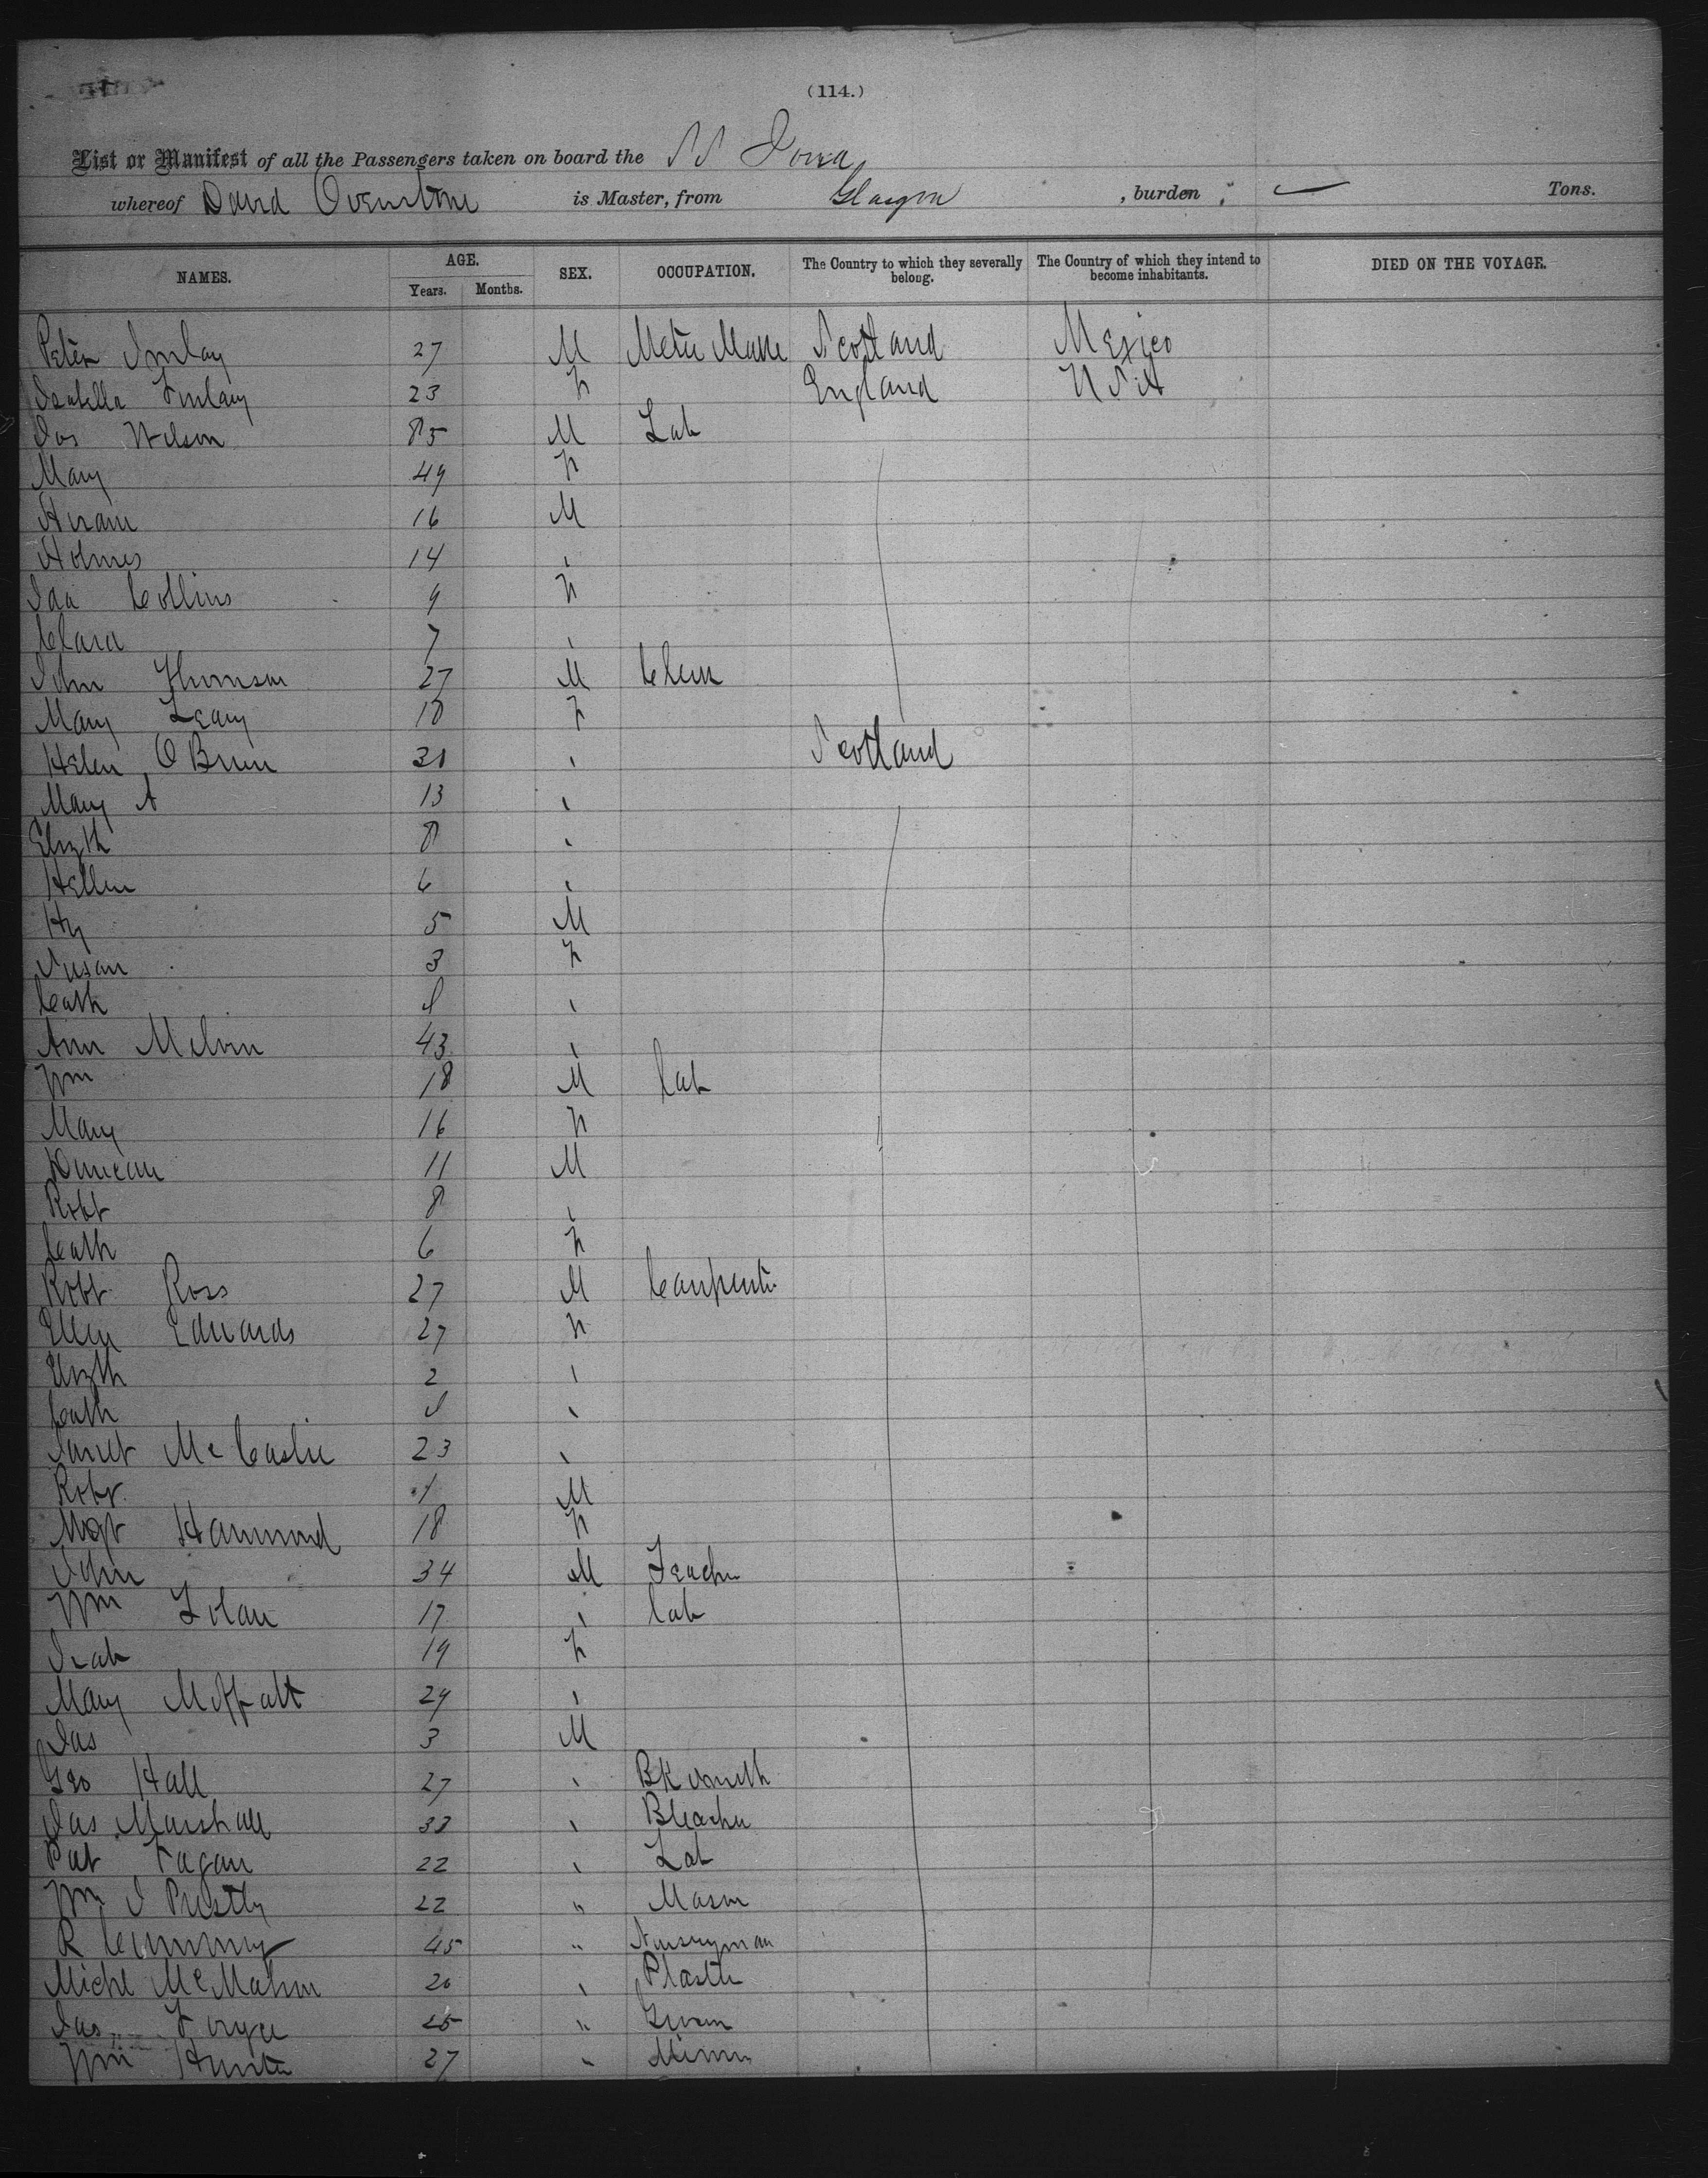 (114.)
List or Manifest of all the Passengers taken on board the SS Iowa
whereof David Overstone is Master, from Glasgow , burden Tons.
NAMES. AGE. SEX. OCCUPATION. The Country to which they severally belong. The Country of which they intend to become inhabitants. DIED ON THE VOYAGE.
Years. Months.
Peter 27 M Scotland Mexico
Isabella Finlay 23 F England USA
Jas Wilson M Lab
Mary 49 F
Hiram 16 M
Holmes 14 "
Ida Collins 9 F
Clara 7 "
John Thomson 27 M Clerk
Mary Leary 18 F
Helen O'Brien " Scotland
Mary A 13 "
Elizth 8 "
Hellen 6 "
Hy 5 M
Susan 3 F
Cath "
Ann Melvin 43 "
Wm 18 M lab
Mary 16 F
Duncan 11 M
Robt 8 "
Cath 6 F
Robt Ross 27 M Carpenter
Ellen Edwards 27 F
Elizth 2 "
Cath "
Janet Mc 23 "
Robt 1 M
Mgt Hammond 18 F
John 34 M Teacher
Wm 17 " lab
Isab 19 F
Mary Moffatt 29 "
Jas 3 M
Geo Hall 27 " Bk smith
Jas Marshall 33 " Bleacher
Pat Fagan 22 " Lab
Wm J Prestly 22 " Mason
R 45 " Nurseryman
Michl McMahon 20 " Plaster
Jas 25 "
Wm Hunter 27 " Miner